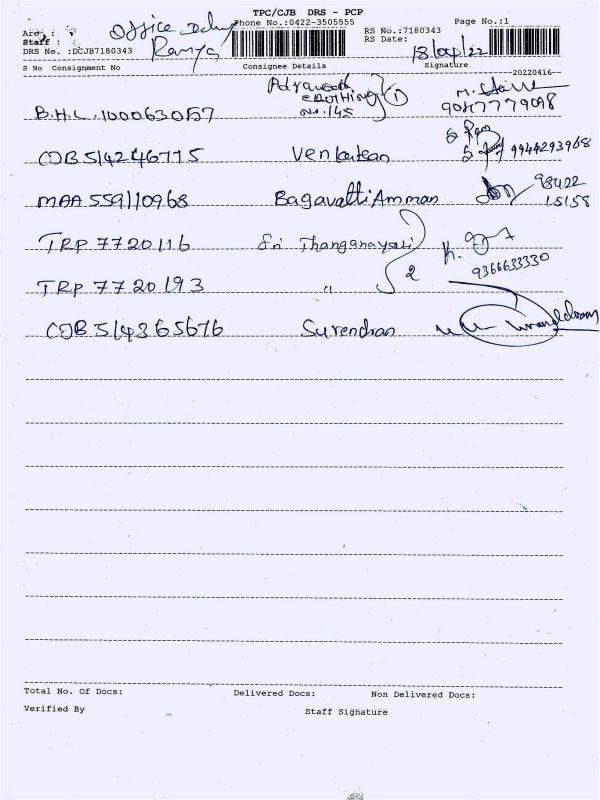 TPC/CJB DRS - PCP
Office Delvy Phone No.:0422-3505555 Page No.:1
Area :
Staff : Ramya RS No.:7180343
DRS No. :DCJB7180343 RS Date: 18/04/22
S No Consignment No Consignee Details Signature
--20220416--
B.H.L. 1000063057 No. 145 ① 9047779098
COB 514246775 Venkatean 9944293968
MAA 559110968 Bagavatti Amman 98422 15158
TRP 7720116 Sri Thanganayaki K.
2 9366633330
TRP 7720193 "
COB 514365676 Surendran
Total No. Of Docs: Delivered Docs: Non Delivered Docs:
Verified By Staff Signature